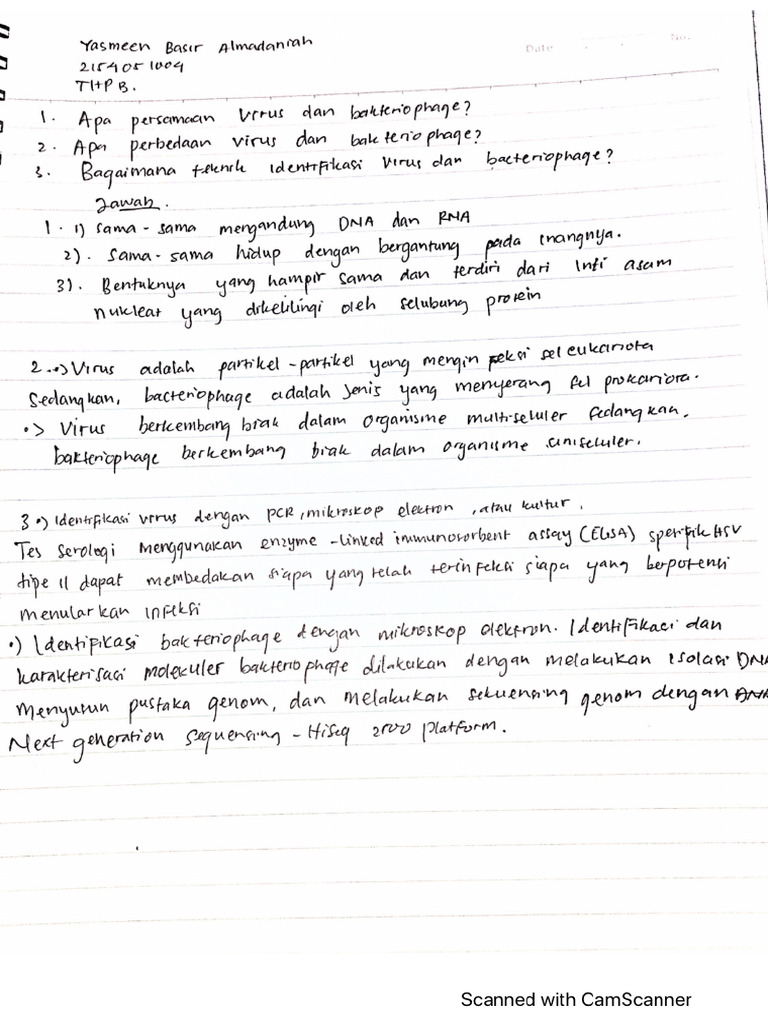 Date No.
Yasmeen Basir Almadaniah
2154051004
THP B.
1. Apa persamaan virus dan bakteriophage?
2. Apa perbedaan virus dan bakteriophage?
3. Bagaimana teknik identifikasi virus dan bacteriophage?
Jawab.
1. 1) Sama-sama mengandung DNA dan RNA
2). Sama-sama hidup dengan bergantung pada inangnya.
3). Bentuknya yang hampir sama dan terdiri dari inti asam
nukleat yang dikelilingi oleh selubung protein
2. •> Virus adalah partikel-partikel yang menginfeksi sel eukariota
Sedangkan, bacteriophage adalah jenis yang menyerang sel prokariota.
•> Virus berkembang biak dalam organisme multiseluler sedangkan,
bakteriophage berkembang biak dalam organisme uniseluler.
3 •) Identifikasi virus dengan PCR, mikroskop elektron, atau kultur.
Tes serologi menggunakan enzyme-linked immunosorbent assay (ELISA) spesifik HSV
tipe II dapat membedakan siapa yang telah terinfeksi siapa yang berpotensi
menularkan infeksi
•) Identifikasi bakteriophage dengan mikroskop elektron. Identifikasi dan
karakterisasi molekuler bakteriophage dilakukan dengan melakukan isolasi DNA
Menyusun pustaka genom, dan melakukan sekuensing genom dengan
Next generation sequencing - HiSeq 2500 platform.
Scanned with CamScanner